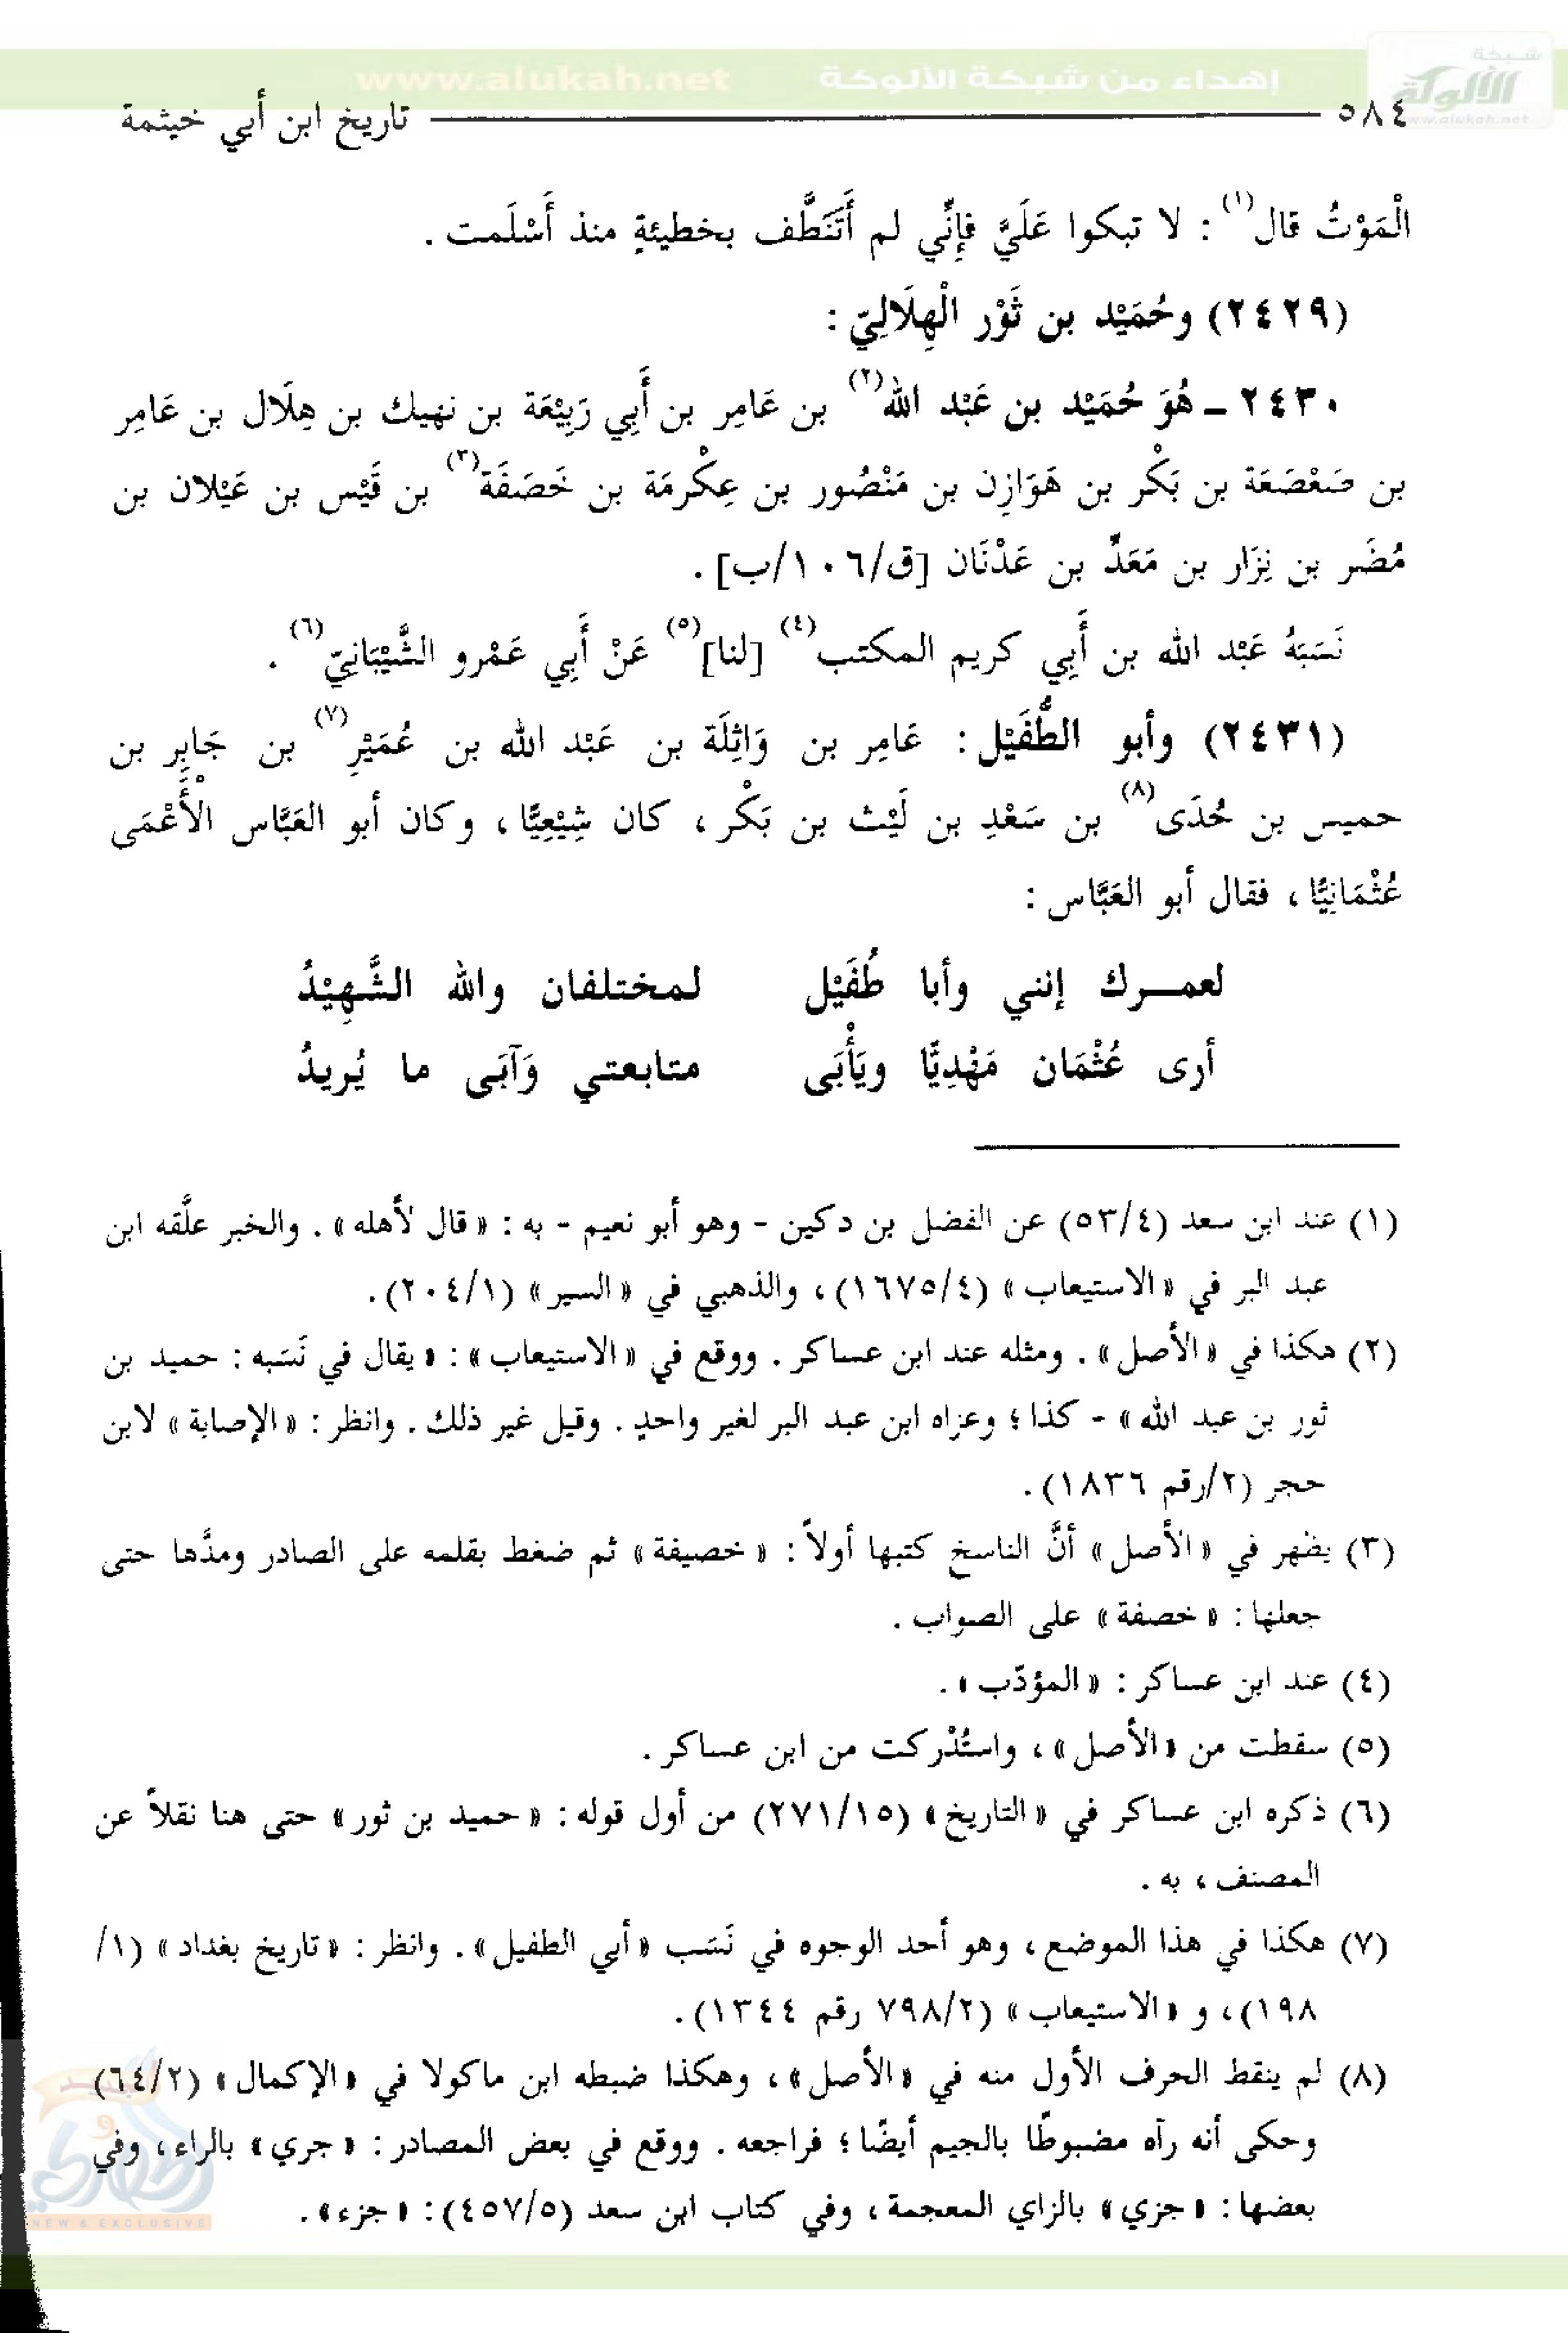 شبكة
الألوكة
www.alukah.net
إهداء من شبكة الألوكة
www.alukah.net
٥٨٤
تاريخ ابن أبي خيثمة
الْمَوْتُ قال(١) : لا تبكوا عَلَيَّ فإِنِّي لم أَتَنَطَّف بخطيئةٍ منذ أَسْلَمت .
(٢٤٢٩) وحُمَيْد بن ثَوْر الْهِلَالِيّ :
٢٤٣٠ - هُوَ حُمَيْد بن عَبْد الله(٢) بن عَامِر بن أَبِي رَبِيْعَة بن نهيك بن هِلَال بن عَامِر
بن صَعْصَعَة بن بَكْر بن هَوَازِن بن مَنْصُور بن عِكْرمَة بن خَصَفَة(٣) بن قَيْس بن عَيْلان بن
مُضَر بن نِزَار بن مَعَدّ بن عَدْنَان [ق/١٠٦/ب] .
نَسَبَهُ عَبْد الله بن أَبِي كريم المكتب(٤) [لنا](٥) عَنْ أَبِي عَمْرو الشَّيْبَانِيّ(٦) .
(٢٤٣١) وأبو الطُّفَيْل : عَامِر بن وَاثِلَة بن عَبْد الله بن عُمَيْرِ(٧) بن جَابِر بن
حميس بن حُدَى(٨) بن سَعْدِ بن لَيْث بن بَكْر ، كان شِيْعِيًّا ، وكان أبو العَبَّاس الْأَعْمَى
عُثْمَانِيًّا ، فقال أبو العَبَّاس :
لعمـــرك إنني وأبا طُفَيْل لمختلفان والله الشَّهِيْدُ
أرى عُثْمَان مَهْدِيًّا ويَأْبَى متابعتي وَآبَى ما يُريدُ
(١) عند ابن سعد (٥٣/٤) عن الفضل بن دكين - وهو أبو نعيم - به : « قال لأهله » . والخبر علَّقه ابن
عبد البر في « الاستيعاب » (١٦٧٥/٤) ، والذهبي في « السير » (٢٠٤/١) .
(٢) هكذا في « الأصل » . ومثله عند ابن عساكر . ووقع في « الاستيعاب » : « يقال في نَسَبه : حميد بن
ثور بن عبد الله » - كذا ؛ وعزاه ابن عبد البر لغير واحدٍ . وقيل غير ذلك . وانظر : « الإصابة » لابن
حجر (٢/رقم ١٨٣٦) .
(٣) يظهر في « الأصل » أنَّ الناسخ كتبها أولاً : « خصيفة » ثم ضغط بقلمه على الصادر ومدَّها حتى
جعلها : « خصفة » على الصواب .
(٤) عند ابن عساكر : « المؤدّب » .
(٥) سقطت من « الأصل » ، واستُدْركت من ابن عساكر .
(٦) ذكره ابن عساكر في « التاريخ » (٢٧١/١٥) من أول قوله : « حميد بن ثور » حتى هنا نقلاً عن
المصنف ، به .
(٧) هكذا في هذا الموضع ، وهو أحد الوجوه في نَسَب « أبي الطفيل » . وانظر : « تاريخ بغداد » (١/
١٩٨) ، و « الاستيعاب » (٧٩٨/٢ رقم ١٣٤٤) .
(٨) لم ينقط الحرف الأول منه في « الأصل » ، وهكذا ضبطه ابن ماكولا في « الإكمال » (٦٤/٢)
وحكى أنه رآه مضبوطًا بالجيم أيضًا ؛ فراجعه . ووقع في بعض المصادر : « جري » بالراء ، وفي
بعضها : « جزي » بالزاي المعجمة ، وفي كتاب ابن سعد (٤٥٧/٥) : « جزء » .
NEW & EXCLUSIVE